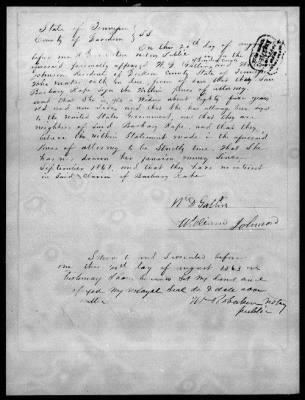 State of Tennessee
County of Davidson } SS
On this 20th day of August
before me a Notary Public
personally appeared W. D. Gatlin and Wm
Johnson Resident of County State of Tennessee
Who that they Saw
Barbary Rape sign the Within Power of attorney.
and that She is a Widow about Eighty five years
old and now living and that she has always been loyal
to the United States Government, and that they are
neighbors of Said Barbary Rape, and that they
believe the Within Statement made in the
Power of attorney to be Strictly true, that She
has not drawn her pension money Since
September 1861, and that they have no interest
in Said Claim of Barbary Rape
Wm D Gatlin
William Johnson
Sworn to and Subscribed before
me this 20th day of August 1863 in
testimony I have hereunto Set my hand and
affixed my Notarial Seal
Wm Notary
public